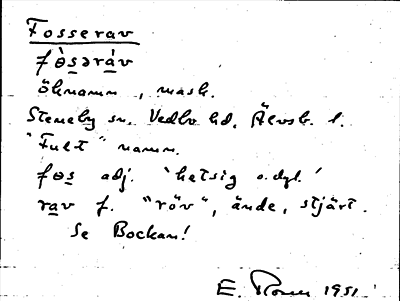 Fosserav
fɵ̀s̱əráv
öknamn, mask.
Steneby sn. Vedbo hd. Älvsb. l.
"Fult" namn.
fɵs̱ adj. 'hetsig o.dyl.'
rav f. "röv", ände, stjärt.
Se Bockan!
E. 1951